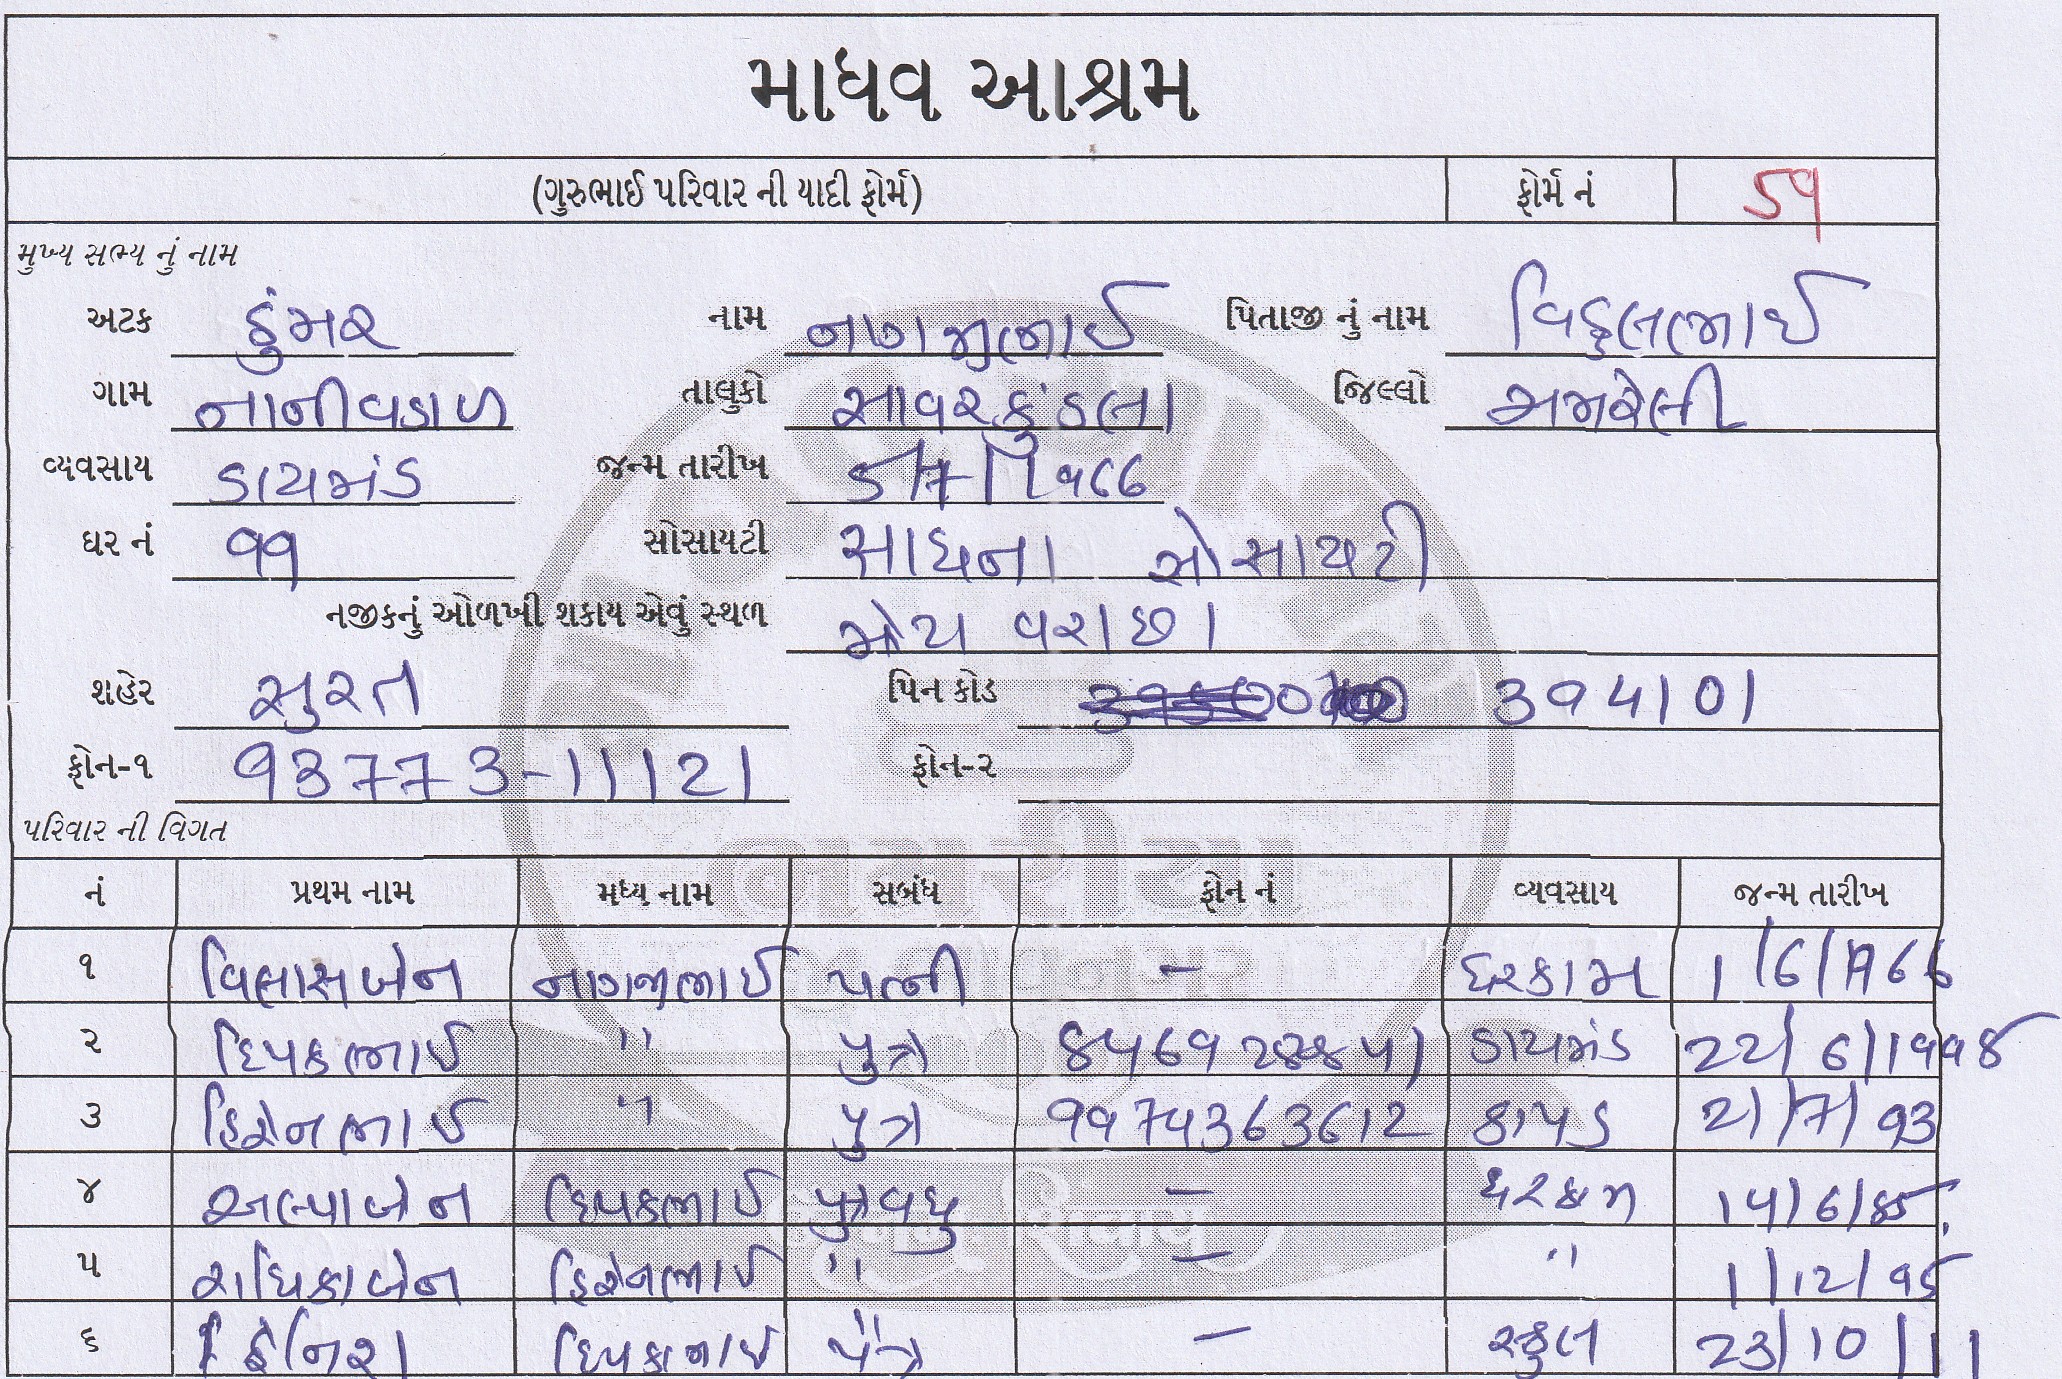 માધવ આશ્રમ
(ગુરુભાઈ પરિવાર ની યાદી ફોર્મ) ફોર્મ નં ૬૧
મુખ્ય સભ્ય નું નામ
અટક ડુંમર નામ નાગજીભાઈ પિતાજી નું નામ વિઠ્ઠલભાઈ
ગામ નાનીવડાળ તાલુકો સાવરકુંડલા જિલ્લો અમરેલી
વ્યવસાય ડાયમંડ જન્મ તારીખ
ઘર નં ૧૧ સોસાયટી સાધના સોસાયટી
નજીકનું ઓળખી શકાય એવું સ્થળ મોટા વરાછા
શહેર સુરત પિન કોડ 394101
ફોન-૧ 93773-11121 ફોન-૨
પરિવાર ની વિગત
નં પ્રથમ નામ મધ્ય નામ સબંધ ફોન નં વ્યવસાય જન્મ તારીખ
૧ વિલાસબેન નાગજીભાઈ પત્ની - ઘરકામ
૨ દિપકભાઈ " પુત્ર ડાયમંડ
૩ હિરેનભાઈ " પુત્ર કાપડ 21/7/93
૪ અલ્પાબેન દિપકભાઈ પુત્રવધુ - ઘરકામ
૫ રાધિકાબેન હિરેનભાઈ " - " 1/12/95
૬ દિપકભાઈ પૌત્ર - સ્કુલ 23/10/11